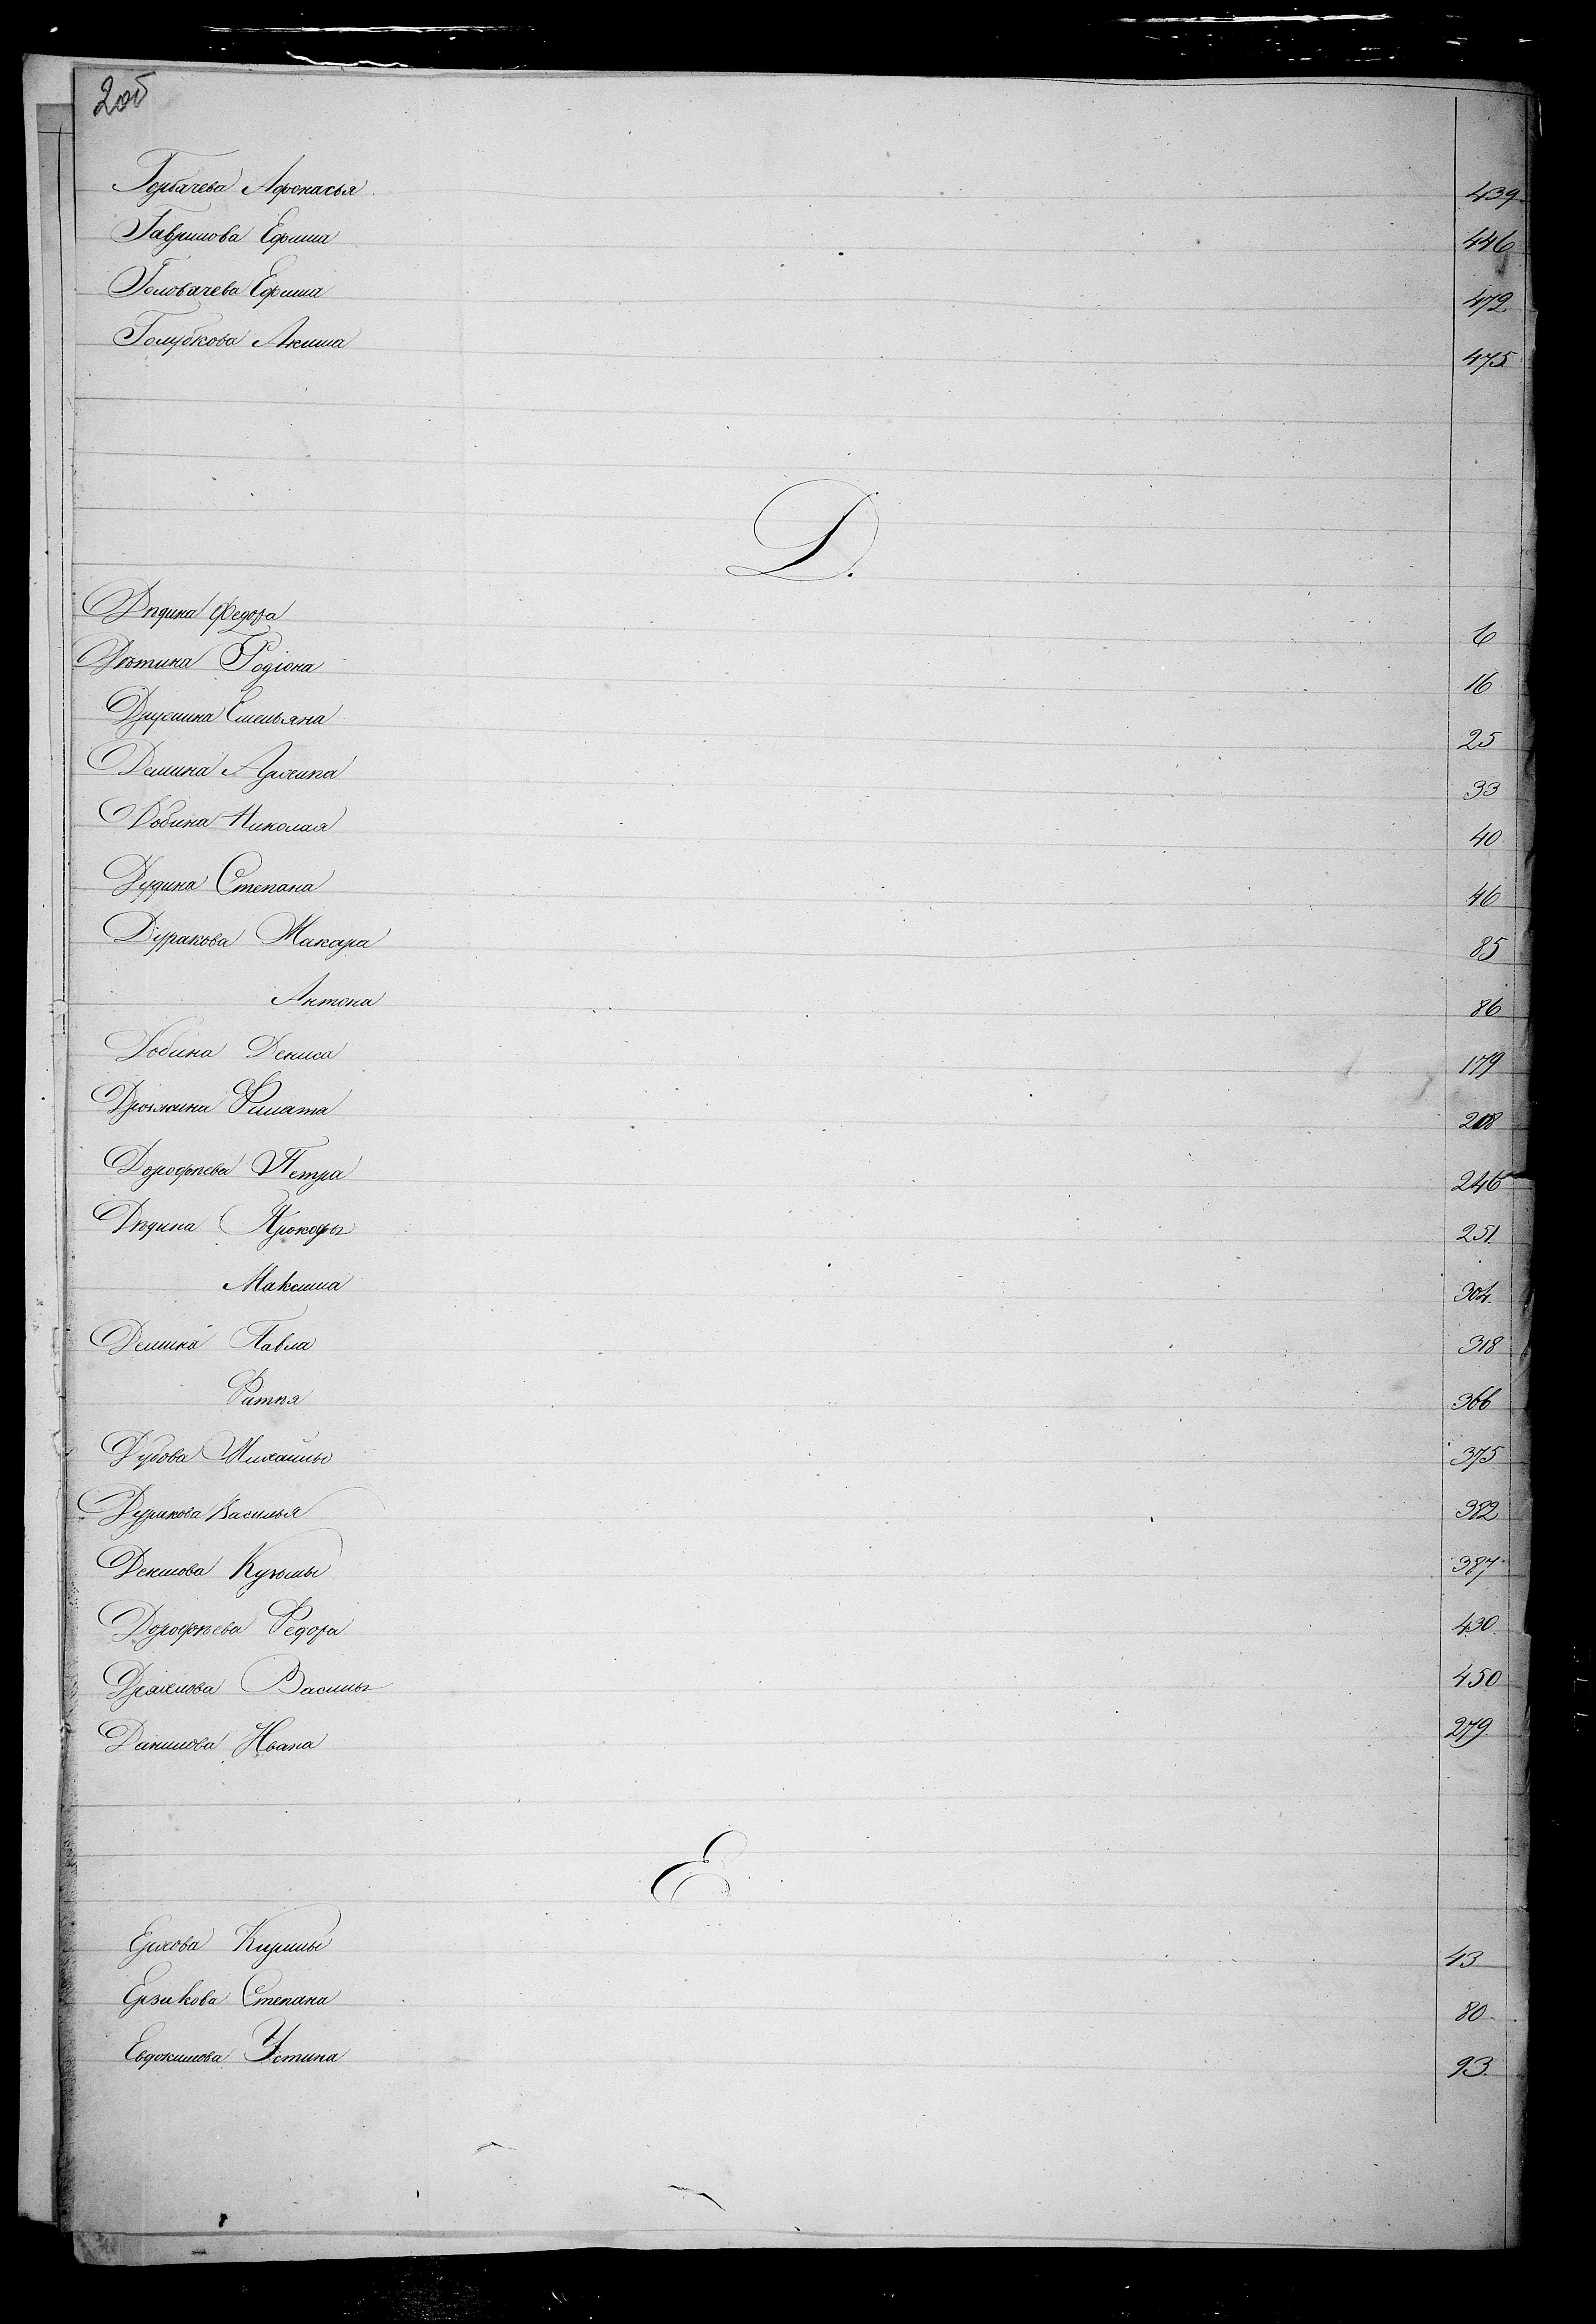 2об
Горбачева Афонасья 439
Гаврилова Ефима 446
Головачева Ефима 472
Голубкова Акима 475
D.
Дѣдина Федора 6
Дѣтина Родіона 16
Дружина Емельяна 25
Демина Архипа 33
Добина Николая 40
Дудина Степана 46
Дуракова Макара 85
Антона 86
Добина Дениса 179
Дрожжина Филата 208
Дорофѣева Петра 246
Дѣдина Прокофья 251
Максима 304.
Демина Павла 318
Фатѣя 366
Дубова Михайлы 375
Дуракова Василья 382
Кузьмы 387
Дорофѣева Федора 430.
Василья 450
Данилова Ивана 279.
Е
Ерхова Кирилы 43
Ерзикова Степана 80
Евдокимова Устина 93.